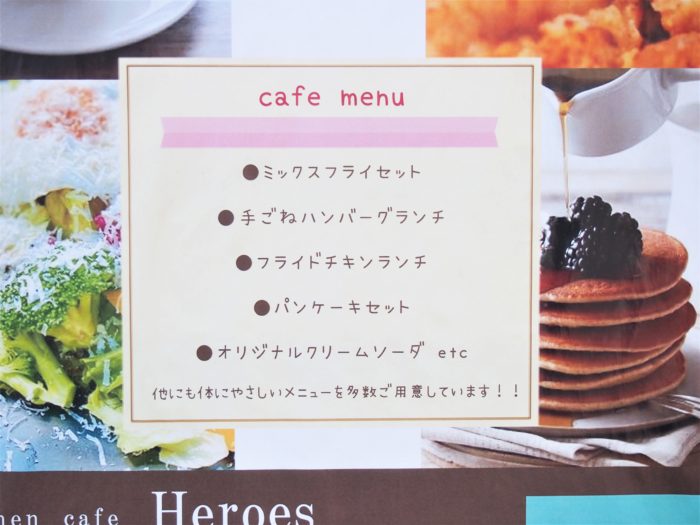 cafe menu
●ミックスフライセット
●手ごねハンバーグランチ
●フライドチキンランチ
●パンケーキセット
●オリジナルクリームソーダ etc
他にも体にやさしいメニューを多数ご用意しています！！
cafe Heroes